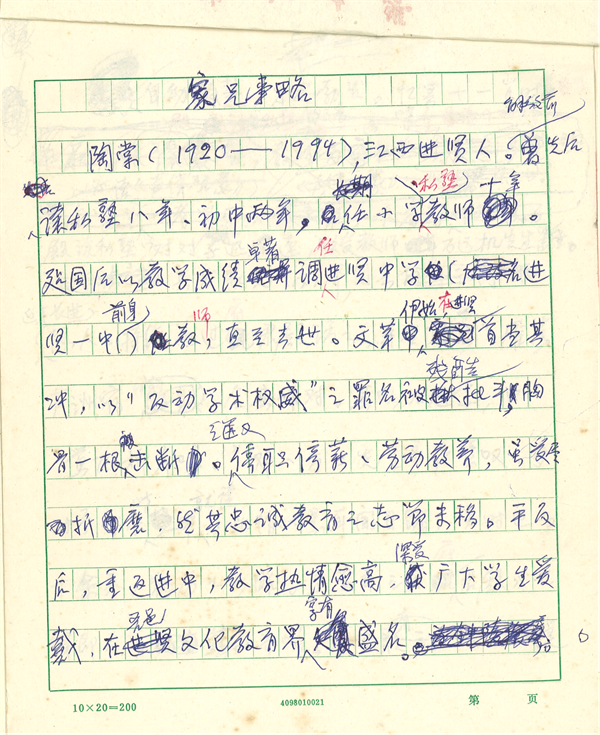 家兄事略
陶棠（1920——1994），江西进贤人。曾先后
私塾 十年
读私塾八年、初中两年，任小学教师。
卓著 任
建国后以教学成绩调进贤中学（进
前身 师 伊始 在进贤
贤一中）教，直至去世。文革首当其
冲，以“反动学术权威”之罪名被批斗，胸
之后又
骨一根被击断。停职停薪、劳动教养，虽受
折磨，然其忠诚教育之志节未移。平反
深受
后，重返进中，教学热情愈高，广大学生爱
享有
戴，在贤文化教育界盛名。
10×20=200
4098010021
第 页